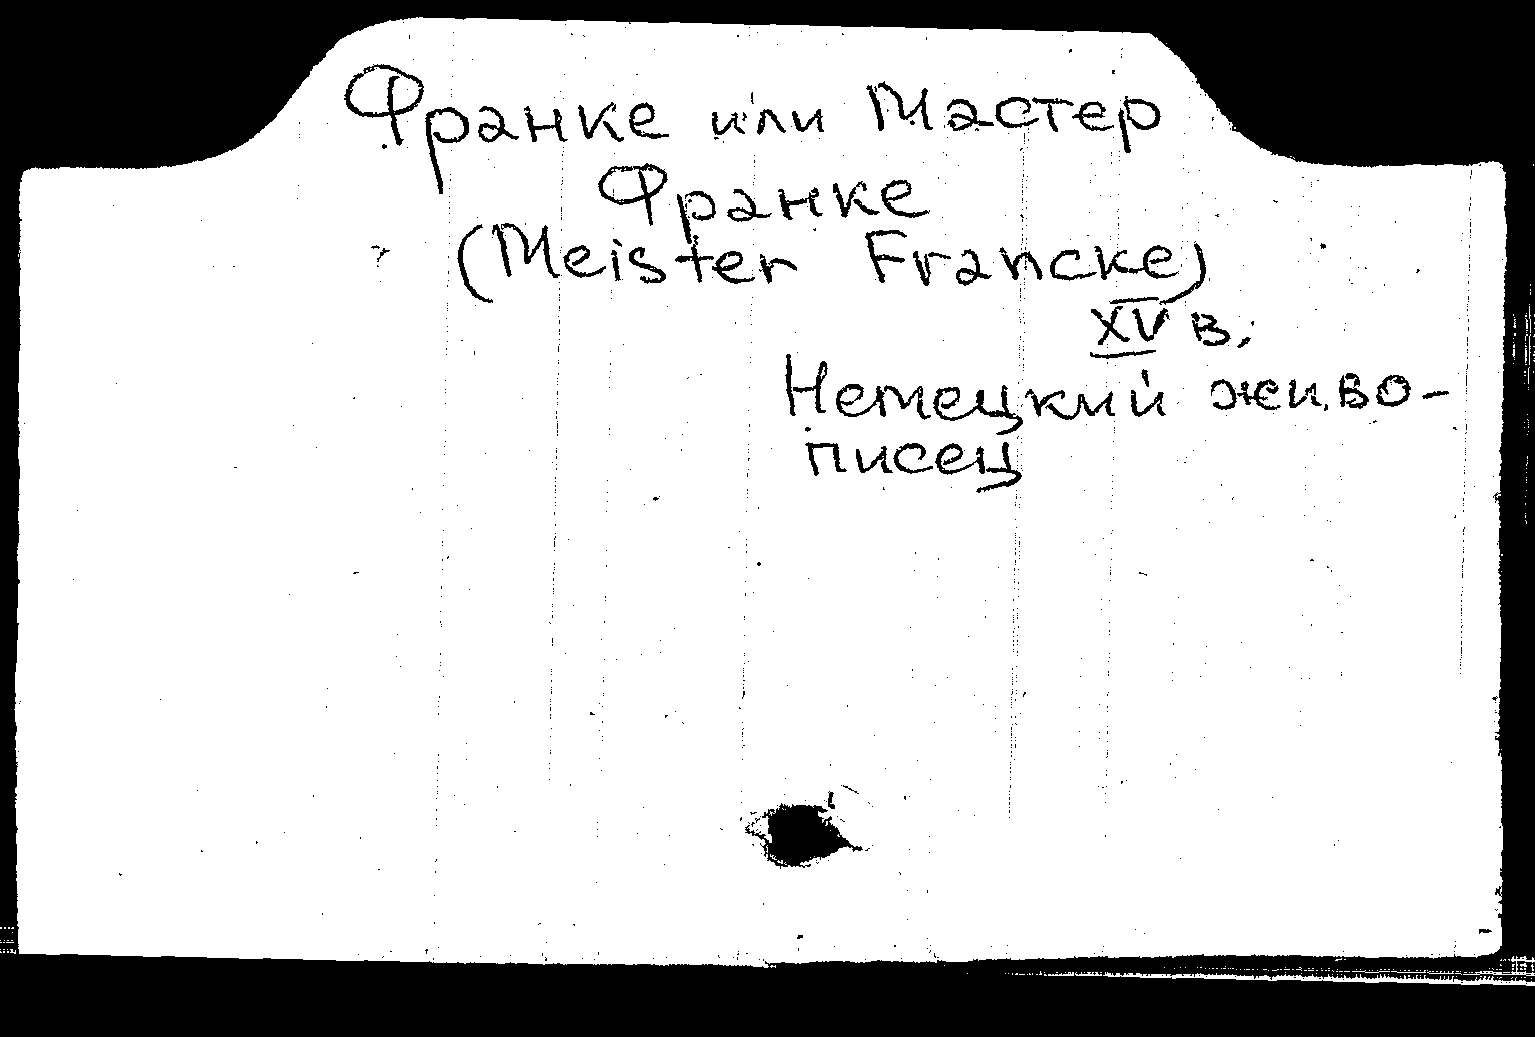 Франке или Мастер
Франке
(Meister Francke)
XV в.
Немецкий живо-
писец